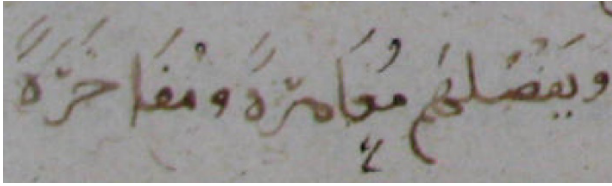 ويَفْضُلهُم مُعَامرةً ومُفَاخَرَةً